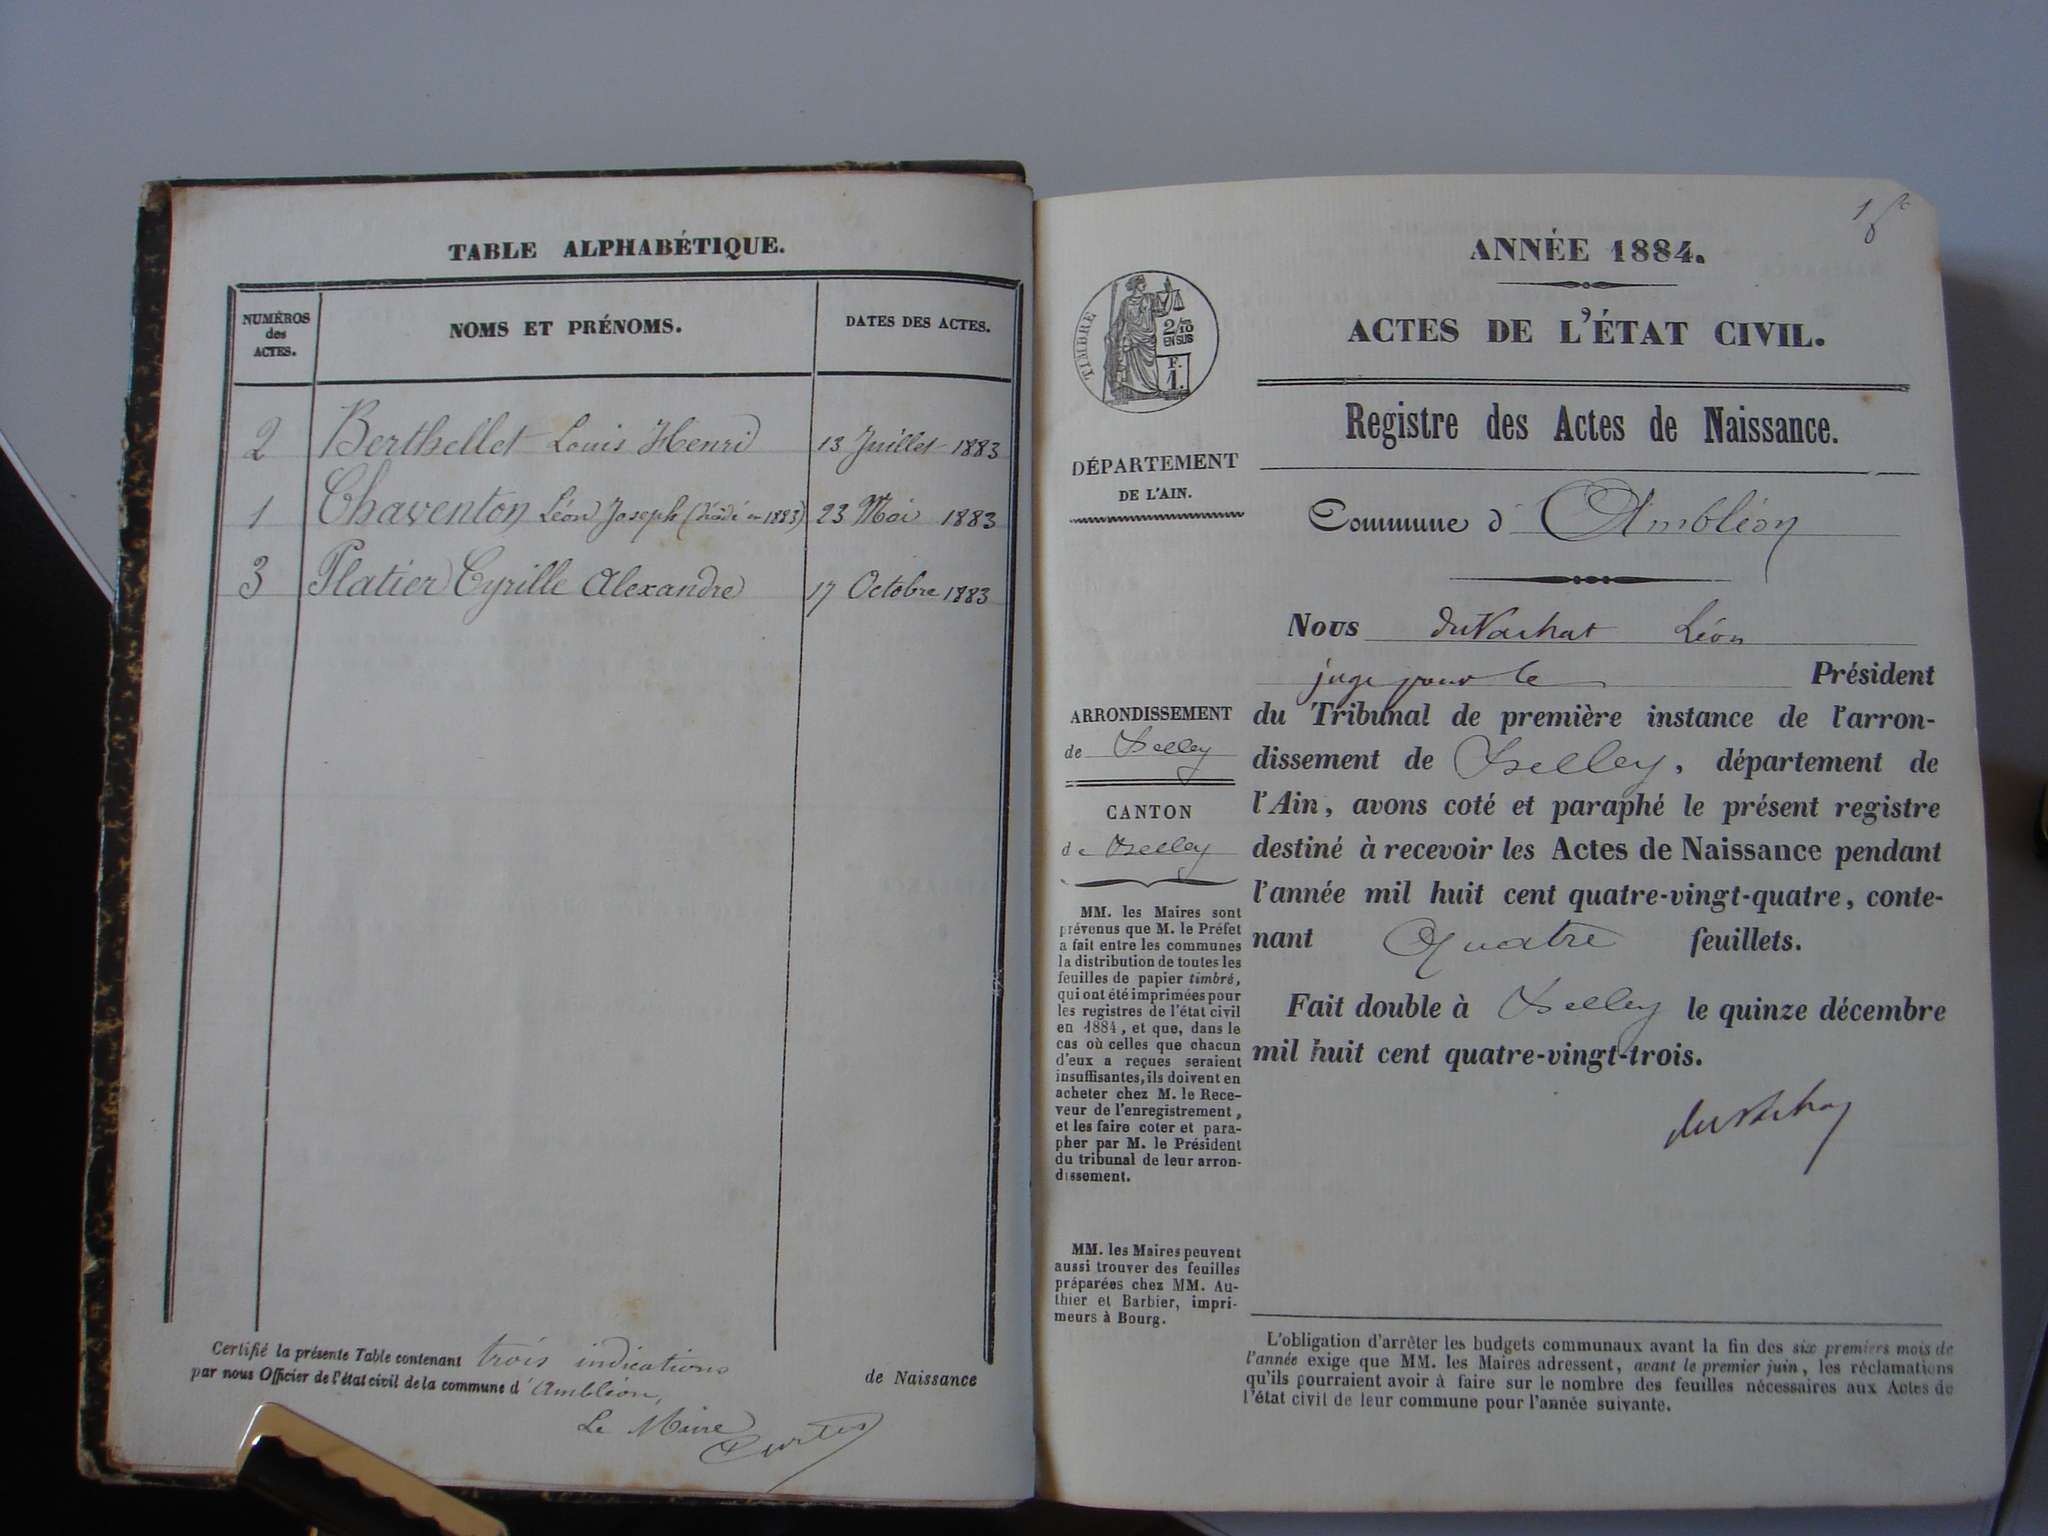 TABLE ALPHABÉTIQUE.
NUMÉROS
des
ACTES.
NOMS ET PRÉNOMS.
DATES DES ACTES.
2 Berthellet Louis Henri 13 Juillet 1883
1 Chaventon Léon Joseph (Décédé en 1883) 23 Mai 1883
3 Platier Cyrille Alexandre 17 Octobre 1883
Certifié la présente Table contenant trois indications de Naissance
par nous Officier de l'état civil de la commune d'Ambléon,
Le Maire
ANNÉE 1884.
ACTES DE L'ÉTAT CIVIL.
TIMBRE
2/10
EN SUS
F.
1.
Registre des Actes de Naissance.
DÉPARTEMENT
DE L'AIN.
Commune d'Ambléon
Nous du Vachat Léon
juge pour le Président
du Tribunal de première instance de l'arron-
dissement de Belley, département de
l'Ain, avons coté et paraphé le présent registre
destiné à recevoir les Actes de Naissance pendant
l'année mil huit cent quatre-vingt-quatre, conte-
nant Quatre feuillets.
Fait double à Belley le quinze décembre
mil huit cent quatre-vingt-trois.
du Vachat
ARRONDISSEMENT
de Belley
CANTON
de Belley
MM. les Maires sont
prévenus que M. le Préfet
a fait entre les communes
la distribution de toutes les
feuilles de papier timbré,
qui ont été imprimées pour
les registres de l'état civil
en 1884, et que, dans le
cas où celles que chacun
d'eux a reçues seraient
insuffisantes, ils doivent en
acheter chez M. le Rece-
veur de l'enregistrement,
et les faire coter et para-
pher par M. le Président
du tribunal de leur arron-
dissement.
MM. les Maires peuvent
aussi trouver des feuilles
préparées chez MM. Au-
thier et Barbier, impri-
meurs à Bourg.
L'obligation d'arrêter les budgets communaux avant la fin des six premiers mois de
l'année exige que MM. les Maires adressent, avant le premier juin, les réclamations
qu'ils pourraient avoir à faire sur le nombre des feuilles nécessaires aux Actes de
l'état civil de leur commune pour l'année suivante.